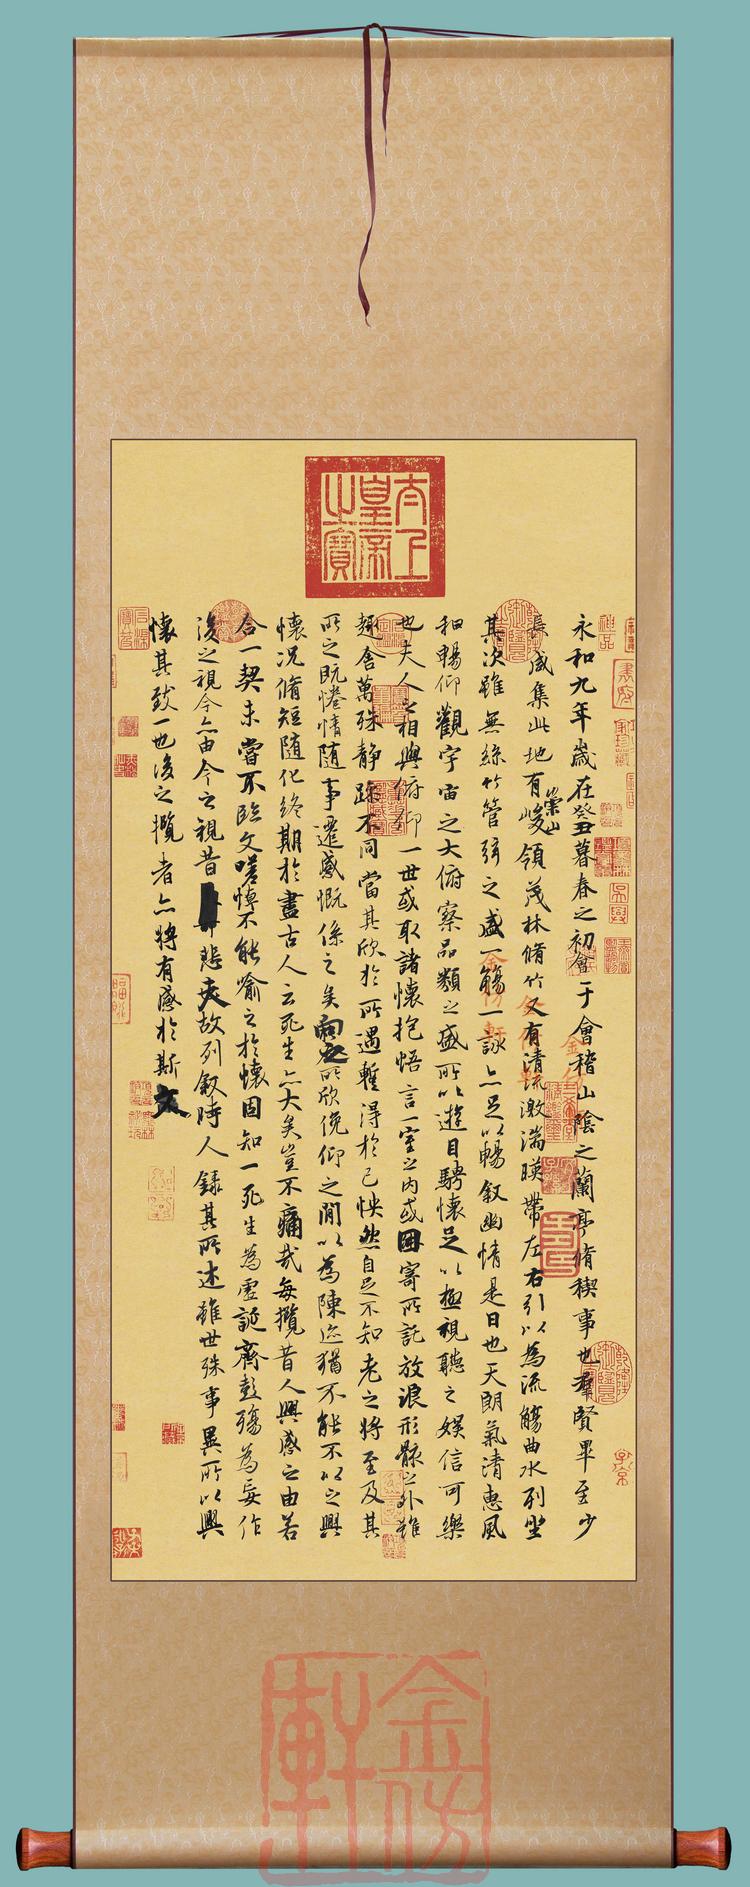 太上
皇帝
之寶
永和九年歲在癸丑暮春之初會于會稽山陰之蘭亭脩稧事也羣賢畢至少
長咸集此地有崇山峻領茂林脩竹又有清流激湍暎帶左右引以為流觴曲水列坐
其次雖無絲竹管弦之盛一觴一詠亦足以暢敘幽情是日也天朗氣清惠風
和暢仰觀宇宙之大俯察品類之盛所以遊目騁懷足以極視聽之娛信可樂
也夫人之相與俯仰一世或取諸懷抱悟言一室之內或因寄所託放浪形骸之外雖
趣舍萬殊靜躁不同當其欣於所遇暫得於己怏然自足不知老之將至及其
所之既惓情隨事遷感慨係之矣向之所欣俛仰之閒以為陳迹猶不能不以之興
懷況脩短隨化終期於盡古人云死生亦大矣豈不痛哉每攬昔人興感之由若
合一契未嘗不臨文嗟悼不能喻之於懷固知一死生為虛誕齊彭殤為妄作
後之視今亦由今之視昔悲夫故列敘時人錄其所述雖世殊事異所以興
懷其致一也後之攬者亦將有感於斯文
金仿
軒